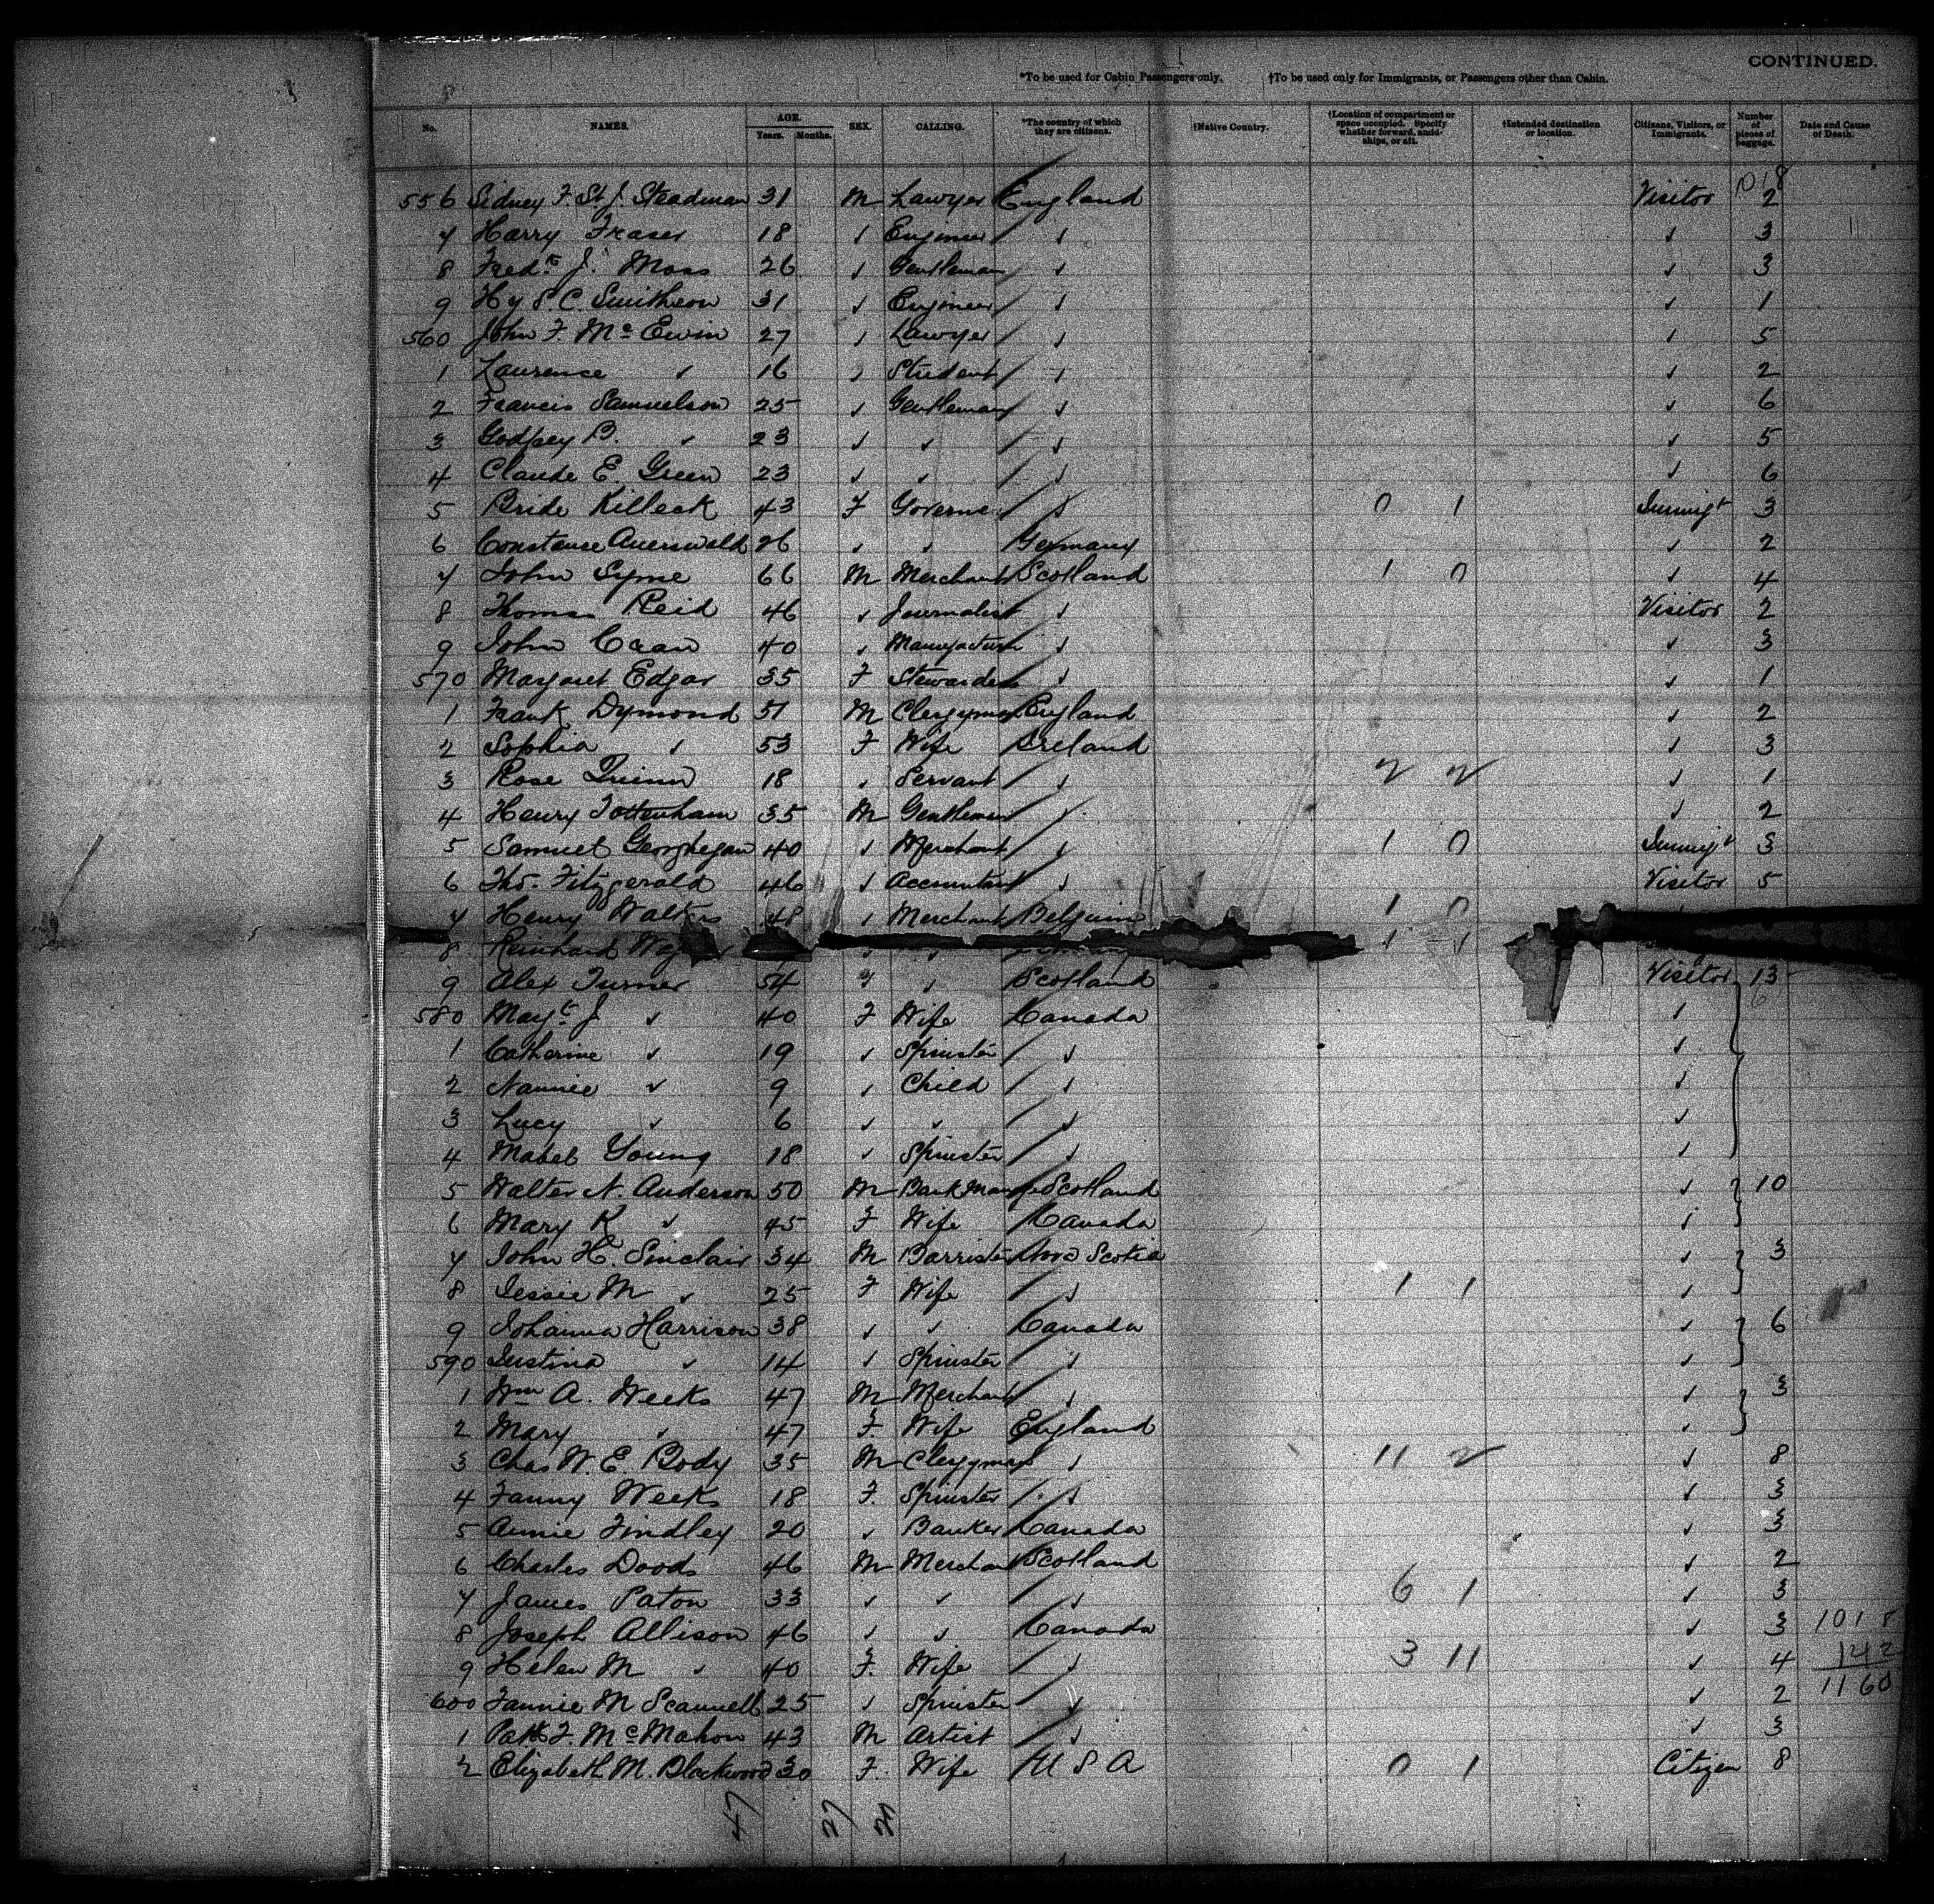 CONTINUED.
*To be used for Cabin Passengers only. †To be used only for Immigrants, or Passengers other than Cabin.
No. NAMES. AGE. Years. Months. SEX. CALLING. *The country of which they are citizens. †Native Country. †Location of compartment or space occupied. Specify whether forward, amidships, or aft. †Intended destination or location. Citizens, Visitors, or Immigrants. Number of pieces of baggage. Date and Cause of Death.
1018
556 Sidney F. St J. Steadman 31 M Lawyer England Visitor 2
7 Harry Fraser 18 " Engineer " " 3
8 Fredk J. Moss 26 " Gentleman " " 3
9 Hy S. C. Smithson 31 " Engineer " " 1
560 John F. Mc Ewin 27 " Lawyer " " 5
1 Laurence " 16 " Student " " 2
2 Francis Samuelson 25 " Gentleman " " 6
3 Godfrey B. " 23 " " " " 5
4 Claude E. Green 23 " " " " 6
5 Bride Killeek 43 F Governes " 0 1 Immigt 3
6 Constance Auerswald 26 " " Germany " 2
7 John Syme 66 M Merchant Scotland 1 0 " 4
8 Thomas Reid 46 " Journalist " Visitor 2
9 John Cran 40 " Manufactur " " 3
570 Margaret Edgar 35 F Stewardess " " 1
1 Frank Dymond 51 M Clergyman England " 2
2 Sophia " 53 F Wife Ireland " 3
3 Rose Quinn 18 " Servant " 2 2 " 1
4 Henry Tottenham 35 M Gentleman " " 2
5 Samuel Geoghegan 40 " Merchant " 1 0 Immigt 3
6 Thos. Fitzgerald 46 " Accountant " Visitor 5
7 Henry Walters 48 " Merchant Belguim 1 0
8 Reinhard " " 1 1
9 Alex Turner 54 " " Scotland Visitor 13
580 Magt J " 40 F Wife Canada "
1 Catherine " 19 " Spinster " "
2 Nannie " 9 " Child " "
3 Lucy " 6 " " " "
4 Mabel Young 18 " Spinster " "
5 Walter N. Anderson 50 M Bank Manager Scotland " 10
6 Mary K " 45 F Wife Canada "
7 John H. Sinclair 34 M Barrister Nova Scotia " 3
8 Jessie M " 25 F Wife " 1 1 "
9 Johanna Harrison 38 " " Canada " 6
590 Justina " 14 " Spinster " "
1 Wm A. Weeks 47 M Merchant " " 3
2 Mary " 47 F. Wife England "
3 Chas W. E. Body 35 M Clergyman " 11 2 " 8
4 Fanny Weeks 18 F. Spinster " " 3
5 Annie Findley 20 " Banker Canada " 3
6 Charles Dodds 46 M Merchant Scotland " 2
7 James Paton 33 " " " 6 1 " 3
8 Joseph Allison 46 " " Canada " 3 1018
9 Helen M " 40 F. Wife " 3 11 " 4 142
600 Fannie M Scannell 25 " Spinster " " 2 1160
1 Patk F. Mc Mahon 43 M Artist " " 3
2 Elizabeth M. Blackwood 30 F. Wife U S A 0 1 Citizen 8
47 27